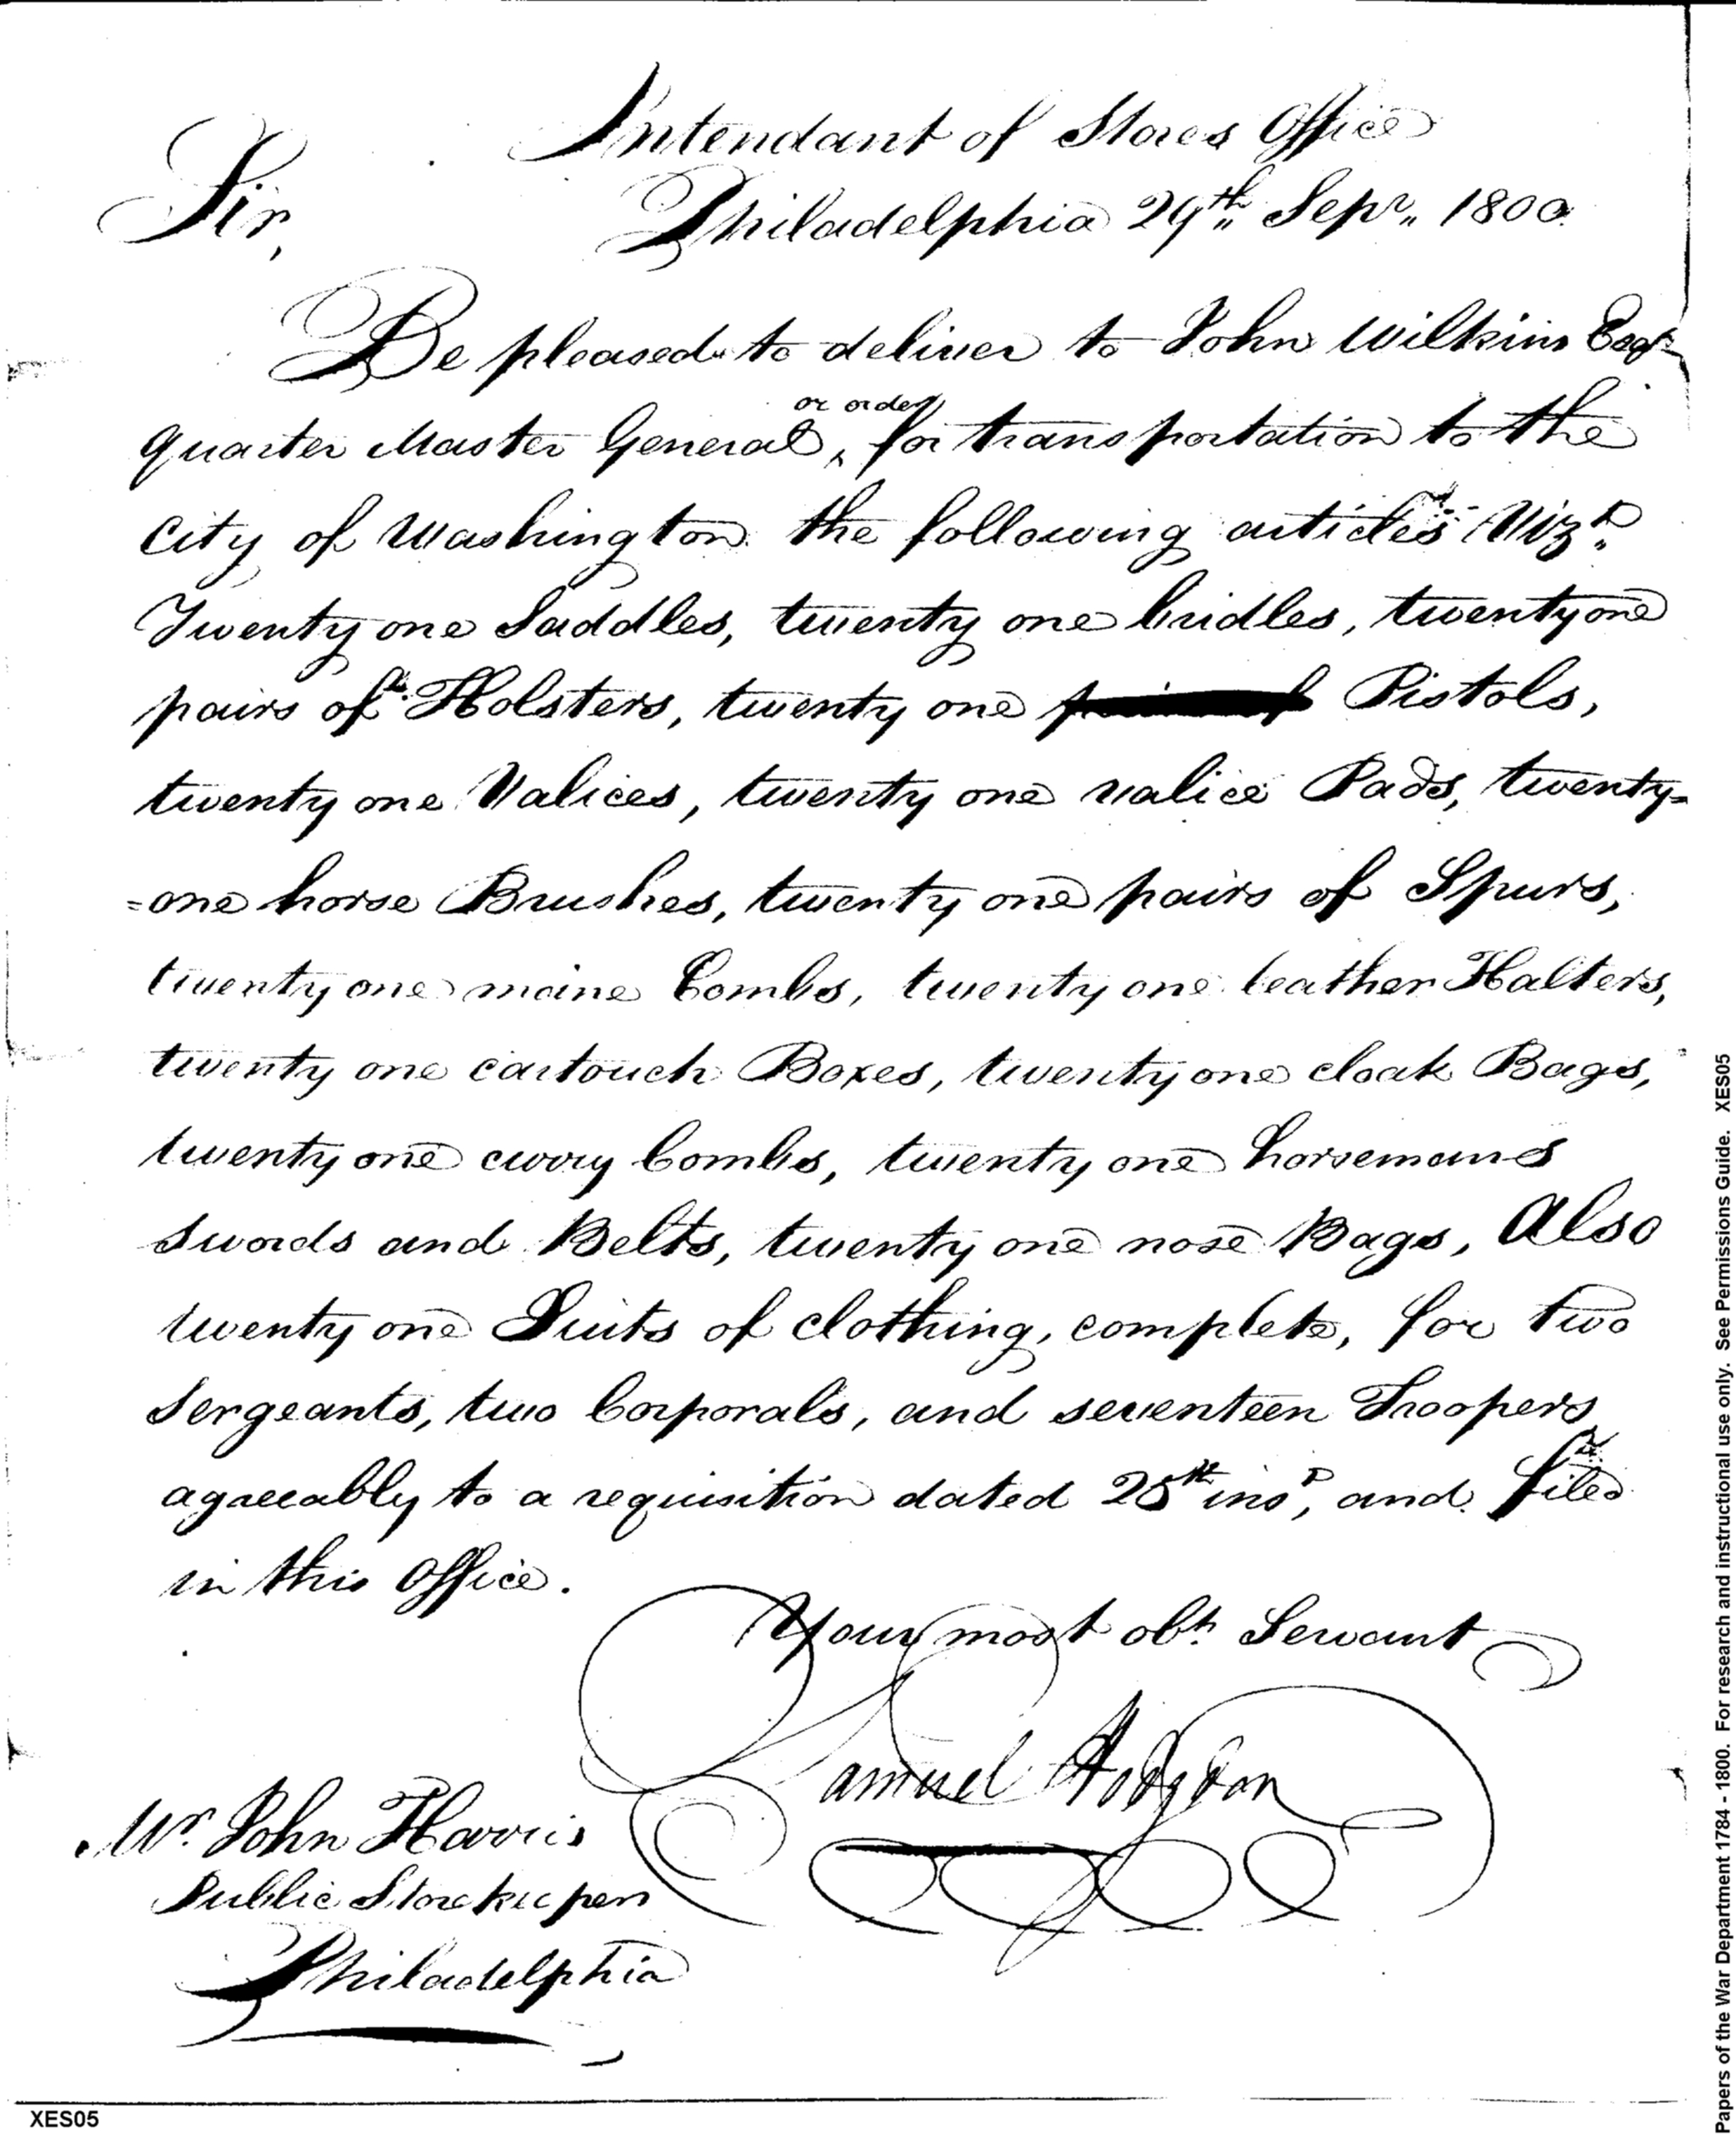 Intendant of Stores Office
Sir,
Philadelphia 29th Sepr. 1800
Be pleased to deliver to John Wilkins Esqr.
quarter Master General, or order, for transportation to the
City of Washington the following articles Vizt.
Twenty one Saddles, twenty one bridles, twenty one
pairs of Holsters, twenty one Pistols,
twenty one Valices, twenty one valice Pads, twenty=
=one horse Brushes, twenty one pairs of Spurs,
twenty one mane Combs, twenty one leather Halters,
twenty one cartouch Boxes, twenty one cloak Bags,
twenty one curry Combs, twenty one horsemans
swords and Belts, twenty one nose Bags, Also
twenty one Suits of clothing, complete, for two
Sergeants, two Corporals, and seventeen Troopers
agreeably to a requisition dated inst, and filed
in this Office.
Your most obt. Servant
Samuel Hodgdon
Mr. John Harris
Public Storekeeper
Philadelphia
XES05
Papers of the War Department 1784 - 1800. For research and instructional use only. See Permissions Guide. XES05